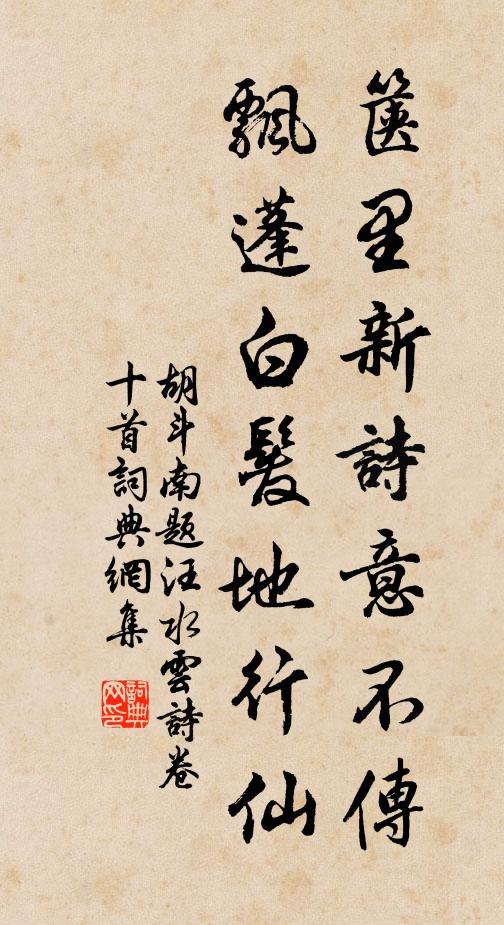 篋里新詩意不傳
飄蓬白髮地行仙
胡斗南題汪水雲詩卷
十首詞典網集
詞典
网印